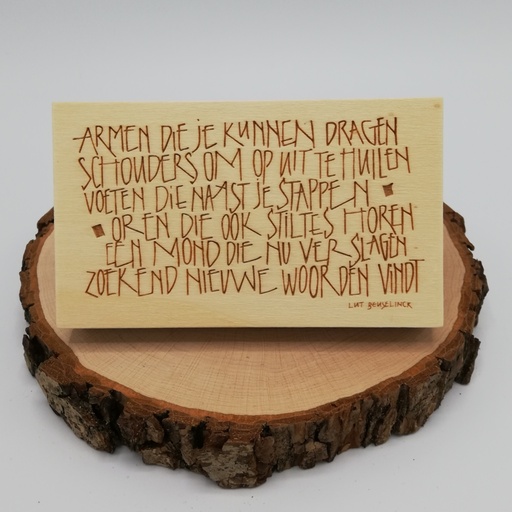 ARMEN DIE JE KUNNEN DRAGEN
SCHOUDERS OM OP UIT TE HUILEN
VOETEN DIE NAAST JE STAPPEN
OREN DIE OOK STILTES HOREN
EEN MOND DIE NU VERSLAGEN
ZOEKEND NIEUWE WOORDEN VINDT
LUT BEUSELINCK